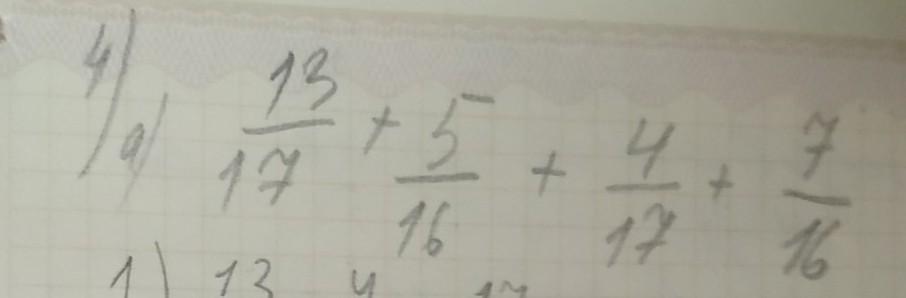 4) a) 13/17 + 5/16 + 4/17 + 7/16
1) 13 4 17